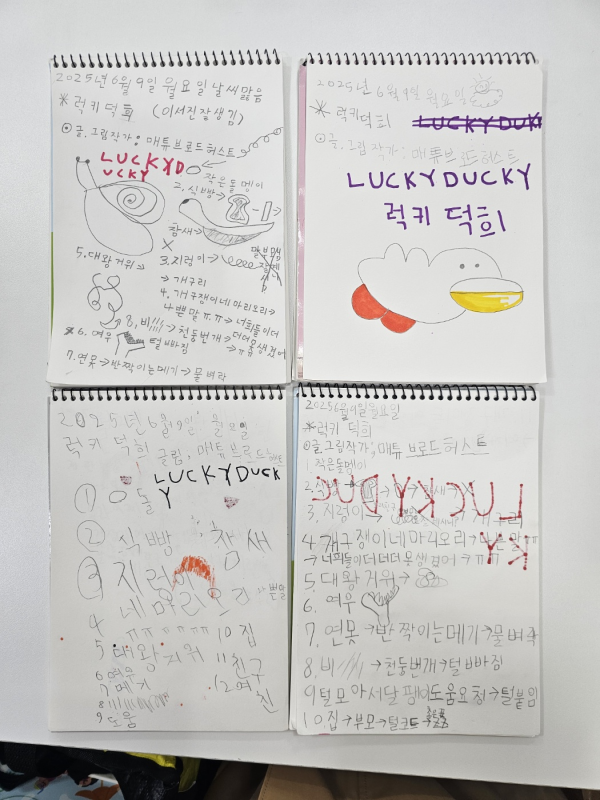 2025년 6월 9일 월요일 날씨 맑음
* 럭키 덕희 (이서진 잘생김)
⊙ 글.그림작가: 매튜 브로드 허스트
LUCKYD
UCKY
작은 돌멩이
2. 식빵→
참새→
X
3. 지렁이→
→ 개구리
4. 개구쟁이네 마리 오리→
나쁜말 ㅠㅠ → 너희들이 더
더더 못생겼어
→ ㅠㅠ
5. 대왕 거위
8. 비//// → 천둥번개 →
털빠짐
* 6. 여우
7. 연못→반짝이는 메기→물벼락
2025년 6월 9일 월요일
* 럭키덕희
LUCKYDUK
⊙ 글.그림작가: 매튜브로드허스트
LUCKYDUCKY
럭키 덕희
2025년 6월 9일 월요일
럭키 덕희 글림, 매튜 브로드허스트
LUCKYDUCK
Y
① 돌
② 식빵, 참새
③ 지렁이
4 네마리오리 쁜말
ㅠㅠ ㅠㅠ
5 대왕거위
6 여우
7 메기
8 ////////
9 도움
10 집
11 친구
12 여
친
2025 6월 9일 월요일
* 럭키 덕희
⊙글.그림작가; 매튜 브로드 허스트
1. 작은돌멩이
2. 식빵→ 참새→
LUCKYDUC
KY
3. 지렁이→ 개구리
4 개구쟁이네마리오리→나쁜말 ㅠㅠ
→너희들이더더더못생겼어→ㅠㅠ
5. 대왕거위→
6. 여우
7. 연못→반짝이는메기→물벼락
8. 비//// →천둥번개→털빠짐
9 털모아서달팽이도움요청→털붙임
10. 집→부모→털코트→